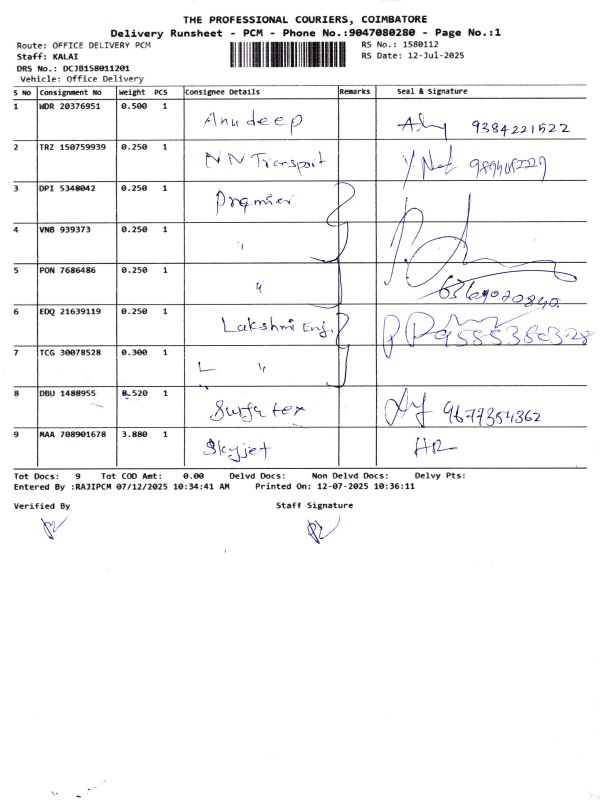 THE PROFESSIONAL COURIERS, COIMBATORE
Delivery Runsheet - PCM - Phone No.:9047080280 - Page No.:1
Route: OFFICE DELIVERY PCM RS No.: 1580112
Staff: KALAI RS Date: 12-Jul-2025
DRS No.: DCJB158011201
Vehicle: Office Delivery
S No Consignment No Weight PCS Consignee Details Remarks Seal & Signature
1 NDR 20376951 0.500 1 Anudeep 9384221522
2 TRZ 150759939 0.250 1 NN Transport
3 DPI 5348042 0.250 1 Premier
4 VNB 939373 0.250 1 "
5 PON 7686486 0.250 1 "
6 EDQ 21639119 0.250 1 Lakshmi Eng.
7 TCG 30078528 0.300 1 L "
8 DBU 1488955 0.520 1 Surfa tex 9677354362
9 MAA 708901678 3.880 1 Skyjet
Tot Docs: 9 Tot COD Amt: 0.00 Delvd Docs: Non Delvd Docs: Delvy Pts:
Entered By :RAJIPCM 07/12/2025 10:34:41 AM Printed On: 12-07-2025 10:36:11
Verified By Staff Signature